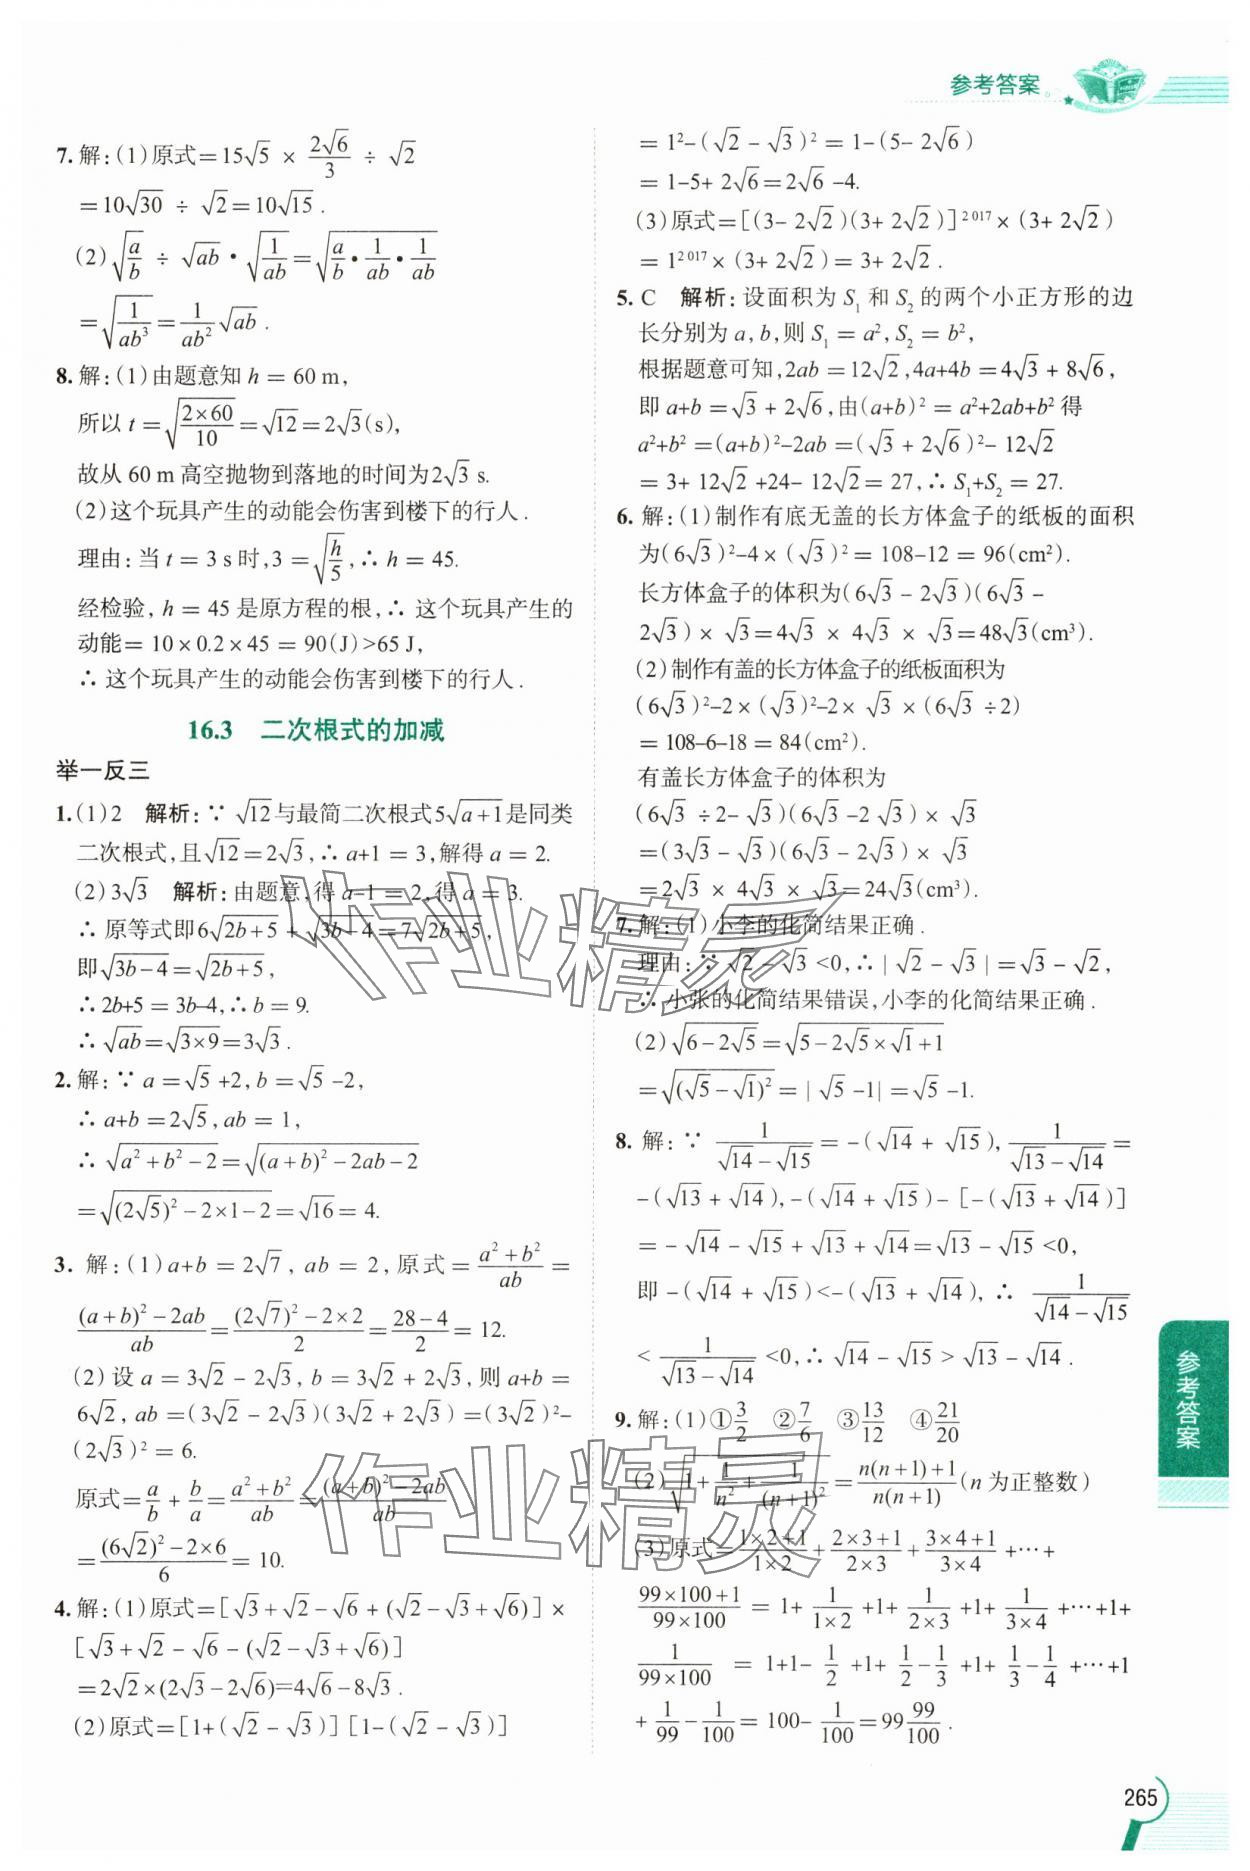 参考答案
7. 解:(1)原式=15√5 × 2√6/3 ÷ √2
=10√30 ÷ √2=10√15.
(2)√(a/b) ÷ √(ab)·√(1/(ab))=√(a/b·1/(ab)·1/(ab))
=√(1/(ab³))=1/(ab²)√(ab).
8. 解:(1)由题意知 h = 60 m,
所以 t=√((2×60)/10)=√12=2√3(s),
故从 60 m 高空抛物到落地的时间为2√3 s.
(2)这个玩具产生的动能会伤害到楼下的行人.
理由:当 t = 3 s时,3 =√(h/5),∴ h = 45.
经检验, h = 45 是原方程的根,∴ 这个玩具产生的
动能= 10×0.2×45 = 90(J)>65 J,
∴ 这个玩具产生的动能会伤害到楼下的行人.
16.3 二次根式的加减
举一反三
1. (1)2 解析:∵ √12与最简二次根式5√(a+1)是同类
二次根式,且√12=2√3,∴ a+1 = 3,解得 a = 2.
(2)3√3 解析:由题意,得 a-1 = 2,得 a = 3.
∴ 原等式即6√(2b+5)+√(3b-4)=7√(2b+5),
即√(3b-4)=√(2b+5),
∴2b+5 = 3b-4,∴b = 9.
∴√(ab)=√(3×9)=3√3.
2. 解:∵ a=√5+2, b=√5-2,
∴ a+b=2√5, ab = 1,
∴√(a²+b²-2)=√((a+b)²-2ab-2)
=√((2√5)²-2×1-2)=√16= 4.
3. 解:(1)a+b = 2√7, ab = 2,原式=(a²+b²)/(ab)=
((a+b)²-2ab)/(ab)=((2√7)²-2×2)/2=(28-4)/2= 12.
(2)设 a = 3√2-2√3, b = 3√2+2√3,则 a+b =
6√2, ab =(3√2-2√3)(3√2+2√3)=(3√2)²-
(2√3)² = 6.
原式=a/b+b/a=(a²+b²)/(ab)=((a+b)²-2ab)/(ab)
=((6√2)²-2×6)/6= 10.
4. 解:(1)原式=[√3+√2-√6+(√2-√3+√6)]×
[√3+√2-√6-(√2-√3+√6)]
=2√2×(2√3-2√6)=4√6-8√3.
(2)原式=[1+(√2-√3)][1-(√2-√3)]
= 1²-(√2-√3)² = 1-(5-2√6)
= 1-5+2√6=2√6-4.
(3)原式=[(3-2√2)(3+2√2)]²⁰¹⁷×(3+2√2)
= 1²⁰¹⁷×(3+2√2)=3+2√2.
5. C 解析:设面积为 S₁ 和 S₂ 的两个小正方形的边
长分别为 a, b,则 S₁ = a², S₂ = b²,
根据题意可知,2ab = 12√2,4a+4b =4√3+8√6,
即 a+b =√3+2√6,由(a+b)² = a²+2ab+b² 得
a²+b² =(a+b)²-2ab =(√3+2√6)²-12√2
= 3+12√2+24-12√2= 27,∴ S₁+S₂ = 27.
6. 解:(1)制作有底无盖的长方体盒子的纸板的面积
为(6√3)²-4×(√3)² = 108-12 = 96(cm²).
长方体盒子的体积为(6√3-2√3)(6√3-
2√3)×√3=4√3×4√3×√3=48√3(cm³).
(2)制作有盖的长方体盒子的纸板面积为
(6√3)²-2×(√3)²-2×√3×(6√3÷2)
= 108-6-18 = 84(cm²).
有盖长方体盒子的体积为
(6√3÷2-√3)(6√3-2√3)×√3
=(3√3-√3)(6√3-2√3)×√3
=2√3×4√3×√3=24√3(cm³).
7. 解:(1)小李的化简结果正确.
理由:∵√2-√3<0,∴|√2-√3|=√3-√2,
∴小张的化简结果错误,小李的化简结果正确.
(2)√(6-2√5)=√(5-2√5×√1+1)
=√((√5-√1)²)=|√5-1|=√5-1.
8. 解:∵ 1/(√14-√15)=-(√14+√15), 1/(√13-√14)=
-(√13+√14),-(√14+√15)-[-(√13+√14)]
=-√14-√15+√13+√14=√13-√15<0,
即-(√14+√15)<-(√13+√14),∴ 1/(√14-√15)
< 1/(√13-√14)<0,∴√14-√15>√13-√14.
9. 解:(1)①3/2 ②7/6 ③13/12 ④21/20
(2)√(1+1/n²+1/(n+1)²)=(n(n+1)+1)/(n(n+1))(n 为正整数)
(3)原式=(1×2+1)/(1×2)+(2×3+1)/(2×3)+(3×4+1)/(3×4)+⋯+
(99×100+1)/(99×100) = 1+1/(1×2)+1+1/(2×3)+1+1/(3×4)+⋯+1+
1/(99×100) = 1+1-1/2+1+1/2-1/3+1+1/3-1/4+⋯+1
+1/99-1/100= 100-1/100=99 99/100.
参考答案
265
作业精灵
作业精灵